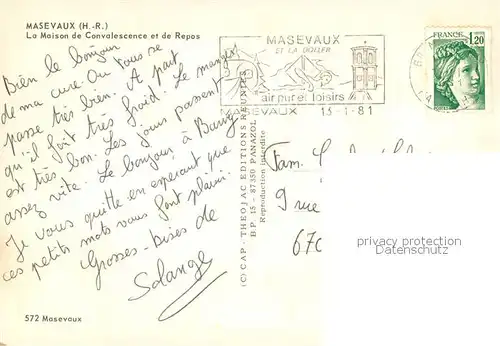 MASEVAUX (H.-R.)
La Maison de Convalescence et de Repos
Bien le bonjour
de ma cure. Ou tous se
passe très bien. A part
qu'il fait très froid. Le manger
est très bon. Les jours passent
assez vite. Le bonjour à
Je vous quitte en espérant que
ces petits mots vous font plaisir.
Grosses-bises de
Solange
572 Masevaux
(C) CAP - THEOJAC EDITIONS REUNIES
B P 15 - 87350 PANAZOL
Reproduction interdite
MASEVAUX
ET LA DOLLER
air pur et loisirs
MASEVAUX 13-1-81
FRANCE
1,20
Fam.
9 rue
670
privacy protection
Datenschutz